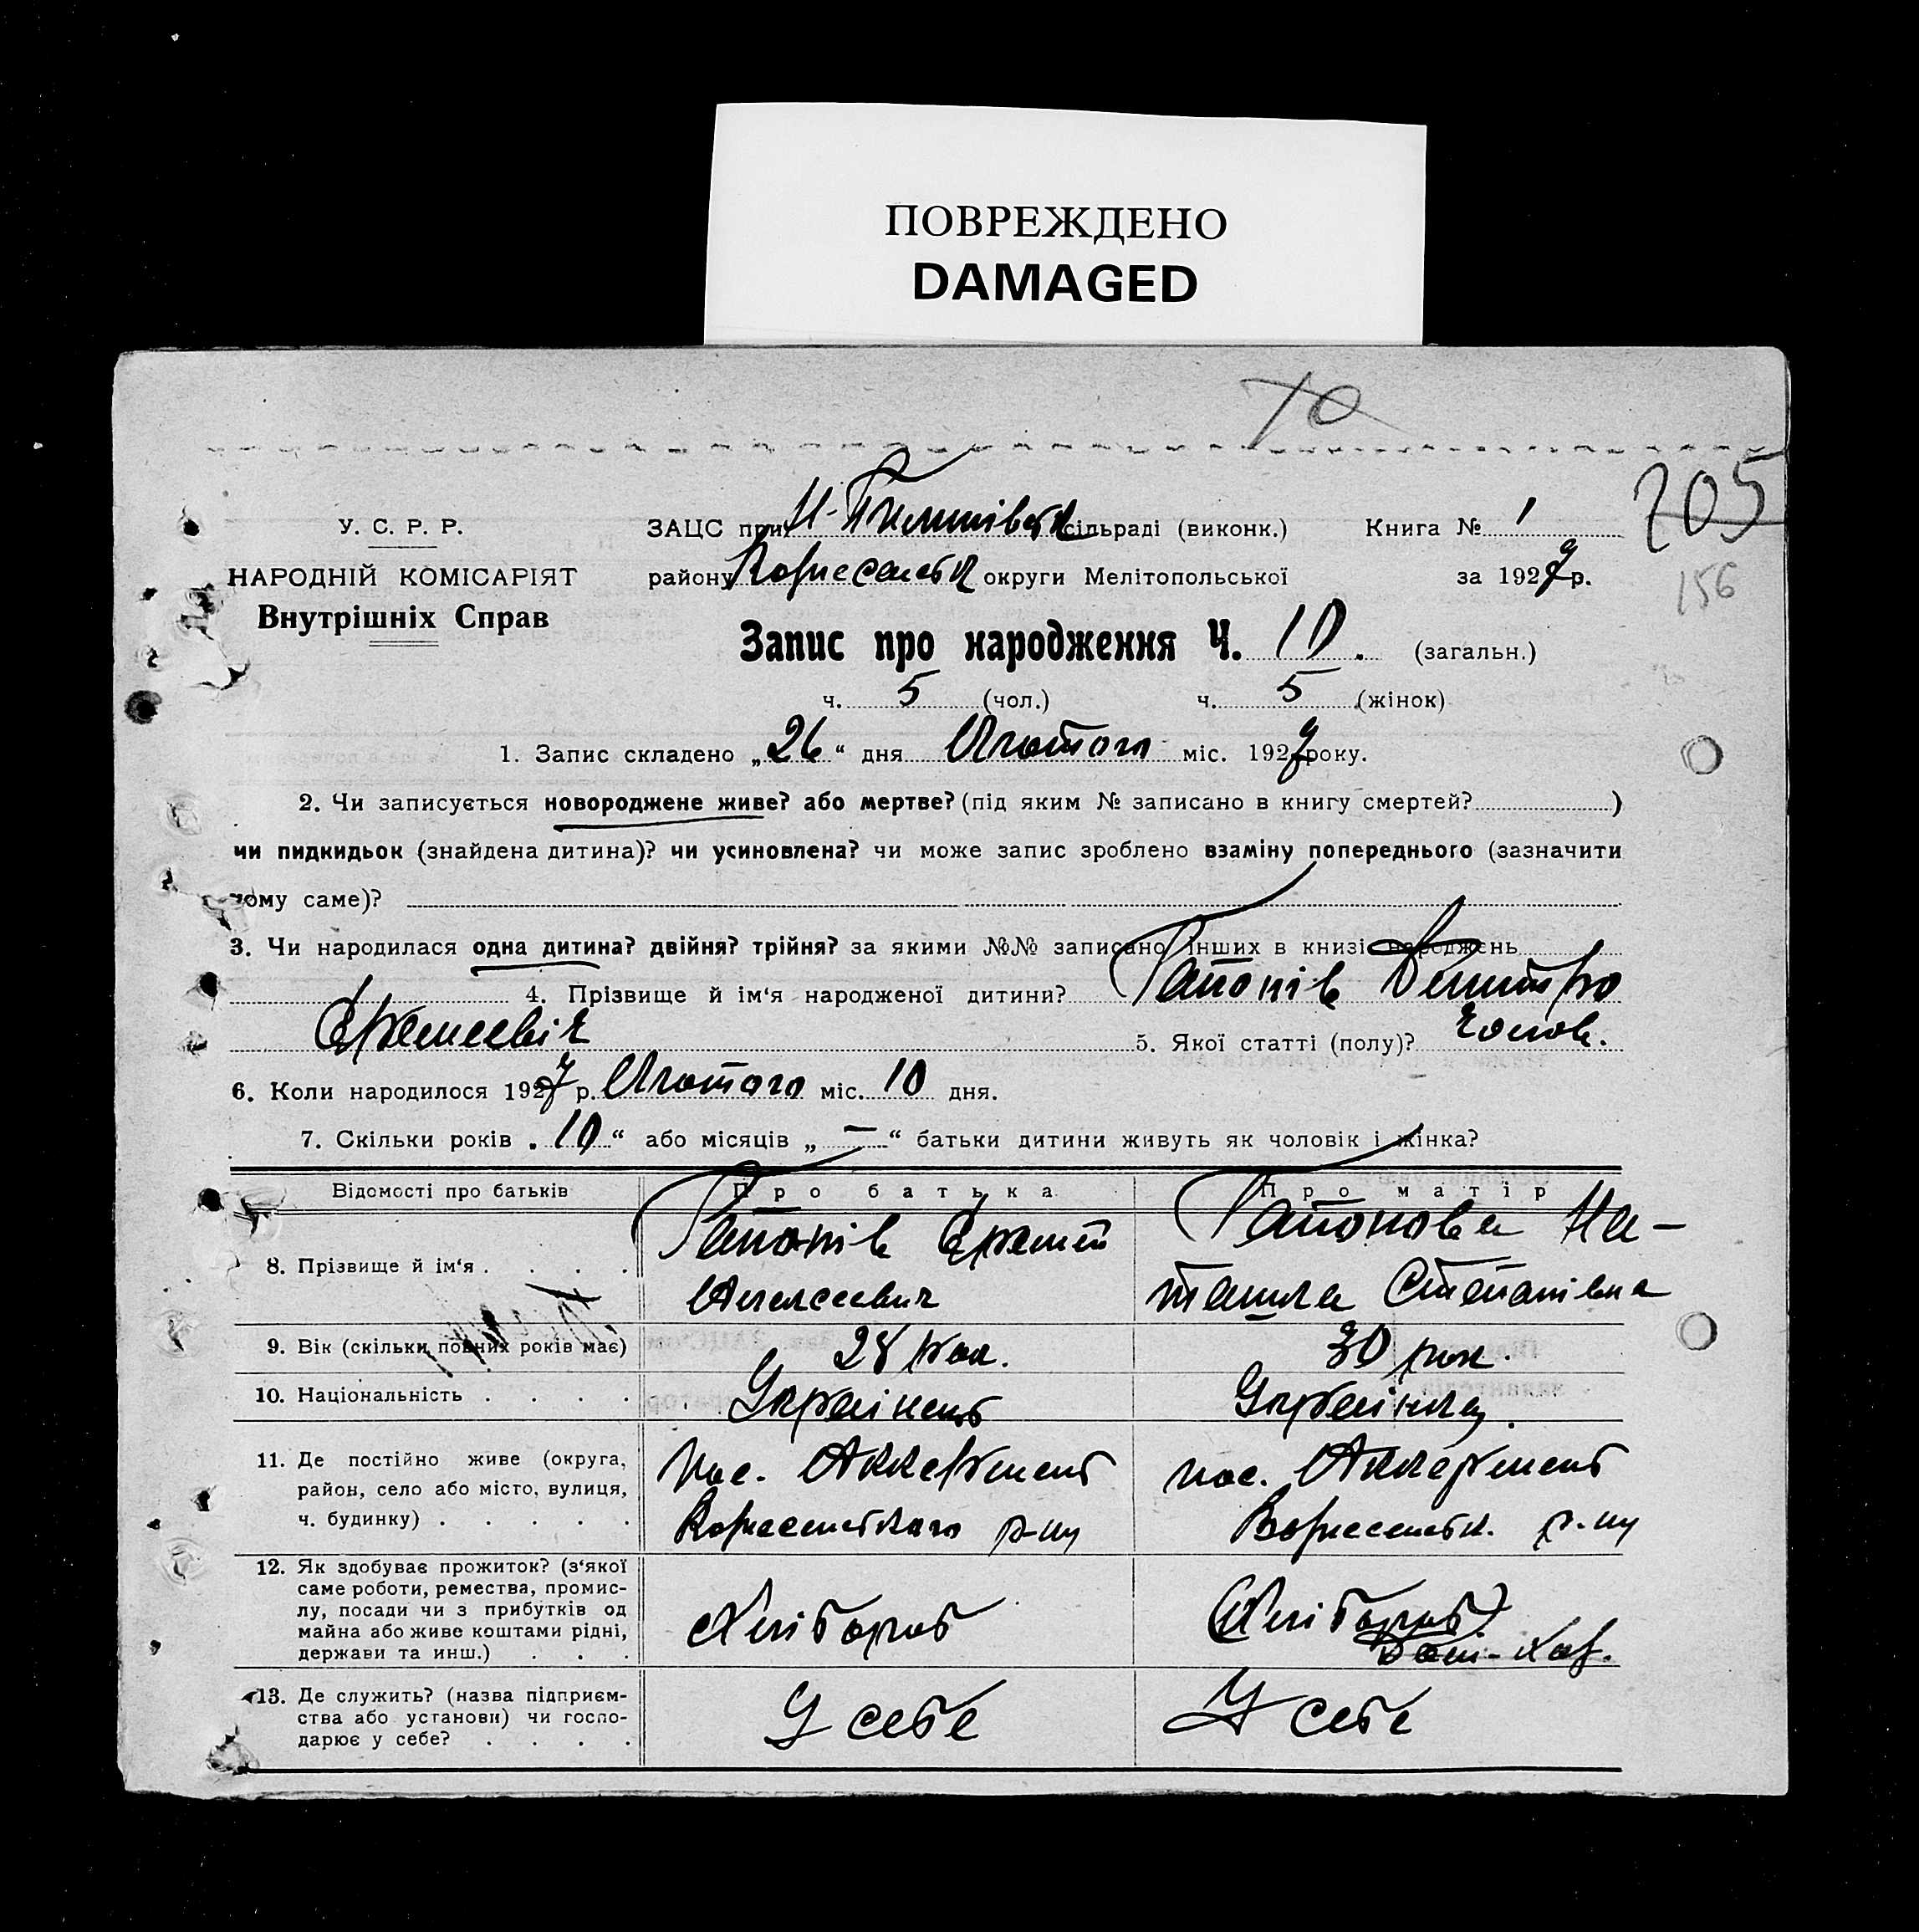 ПОВРЕЖДЕНО
DAMAGED
70
205
156
У. С. Р. Р.
НАРОДНІЙ КОМІСАРІЯТ
Внутрішніх Справ
ЗАЦС при сільраді (виконк.) Книга № 1
району округи Мелітопольської за 1927 р.
Запис про народження Ч. 10. (загальн.)
ч. 5 (чол.) ч. 5 (жінок)
1. Запис складено „26“ дня Лютого міс. 1927 року.
2. Чи записується новороджене живе? або мертве? (під яким № записано в книгу смертей? )
чи пидкидьок (знайдена дитина)? чи усиновлена? чи може запис зроблено взаміну попереднього (зазначити
чому саме)?
3. Чи народилася одна дитина? двійня? трійня? за якими №№ записано інших в книзі народжень
4. Прізвище й ім‘я народженої дитини? Гапонів Дмитро
Єремеевіч 5. Якої статті (полу)? чолов.
6. Коли народилося 1927 р. Лютого міс. 10 дня.
7. Скільки років „10“ або місяців „—“ батьки дитини живуть як чоловік і жінка?
Відомості про батьків Про батька Про матір
8. Прізвище й ім‘я . . . . Гапонів Єремей Гапонова На-
Алексеевич талиа Степанівна
9. Вік (скільки повних років має) 28 рок. 30 рок.
10. Національність . . . . Українець Українка
11. Де постійно живе (округа, район, село або місто, вулиця, ч. будинку) . . . . . пос. Аккермень пос. Аккермень
р-ну р-ну
12. Як здобуває прожиток? (з‘якої саме роботи, ремества, промислу, посади чи з прибутків од майна або живе коштами рідні, держави та инш.) . . . Хлібороб (Хлібороб)
Дом-хаз.
13. Де служить? (назва підприємства або установи) чи господарює у себе? . . . . У себе У себе